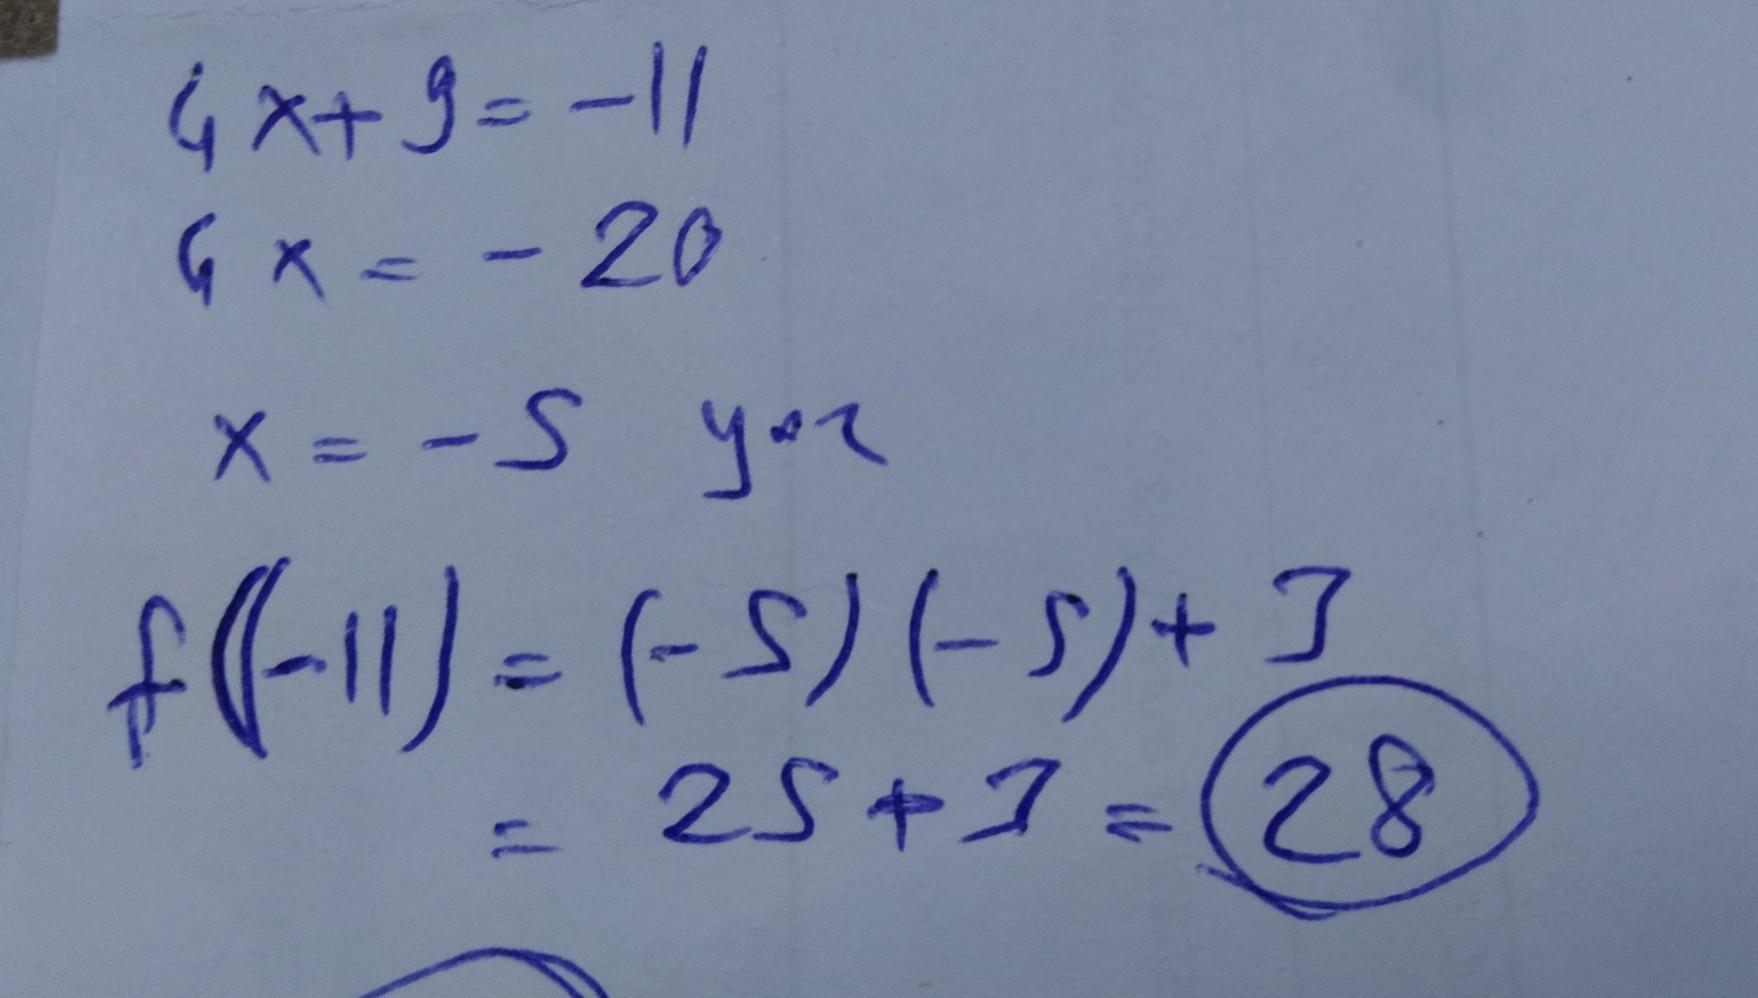 4x+9=-11
4x=-20
x=-5 yaz
f(-11)=(-5)(-5)+3
=25+3=28